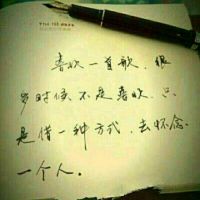 喜欢一首歌，很
多时候，不是喜欢，只
是借一种方式，去怀念
一个人。